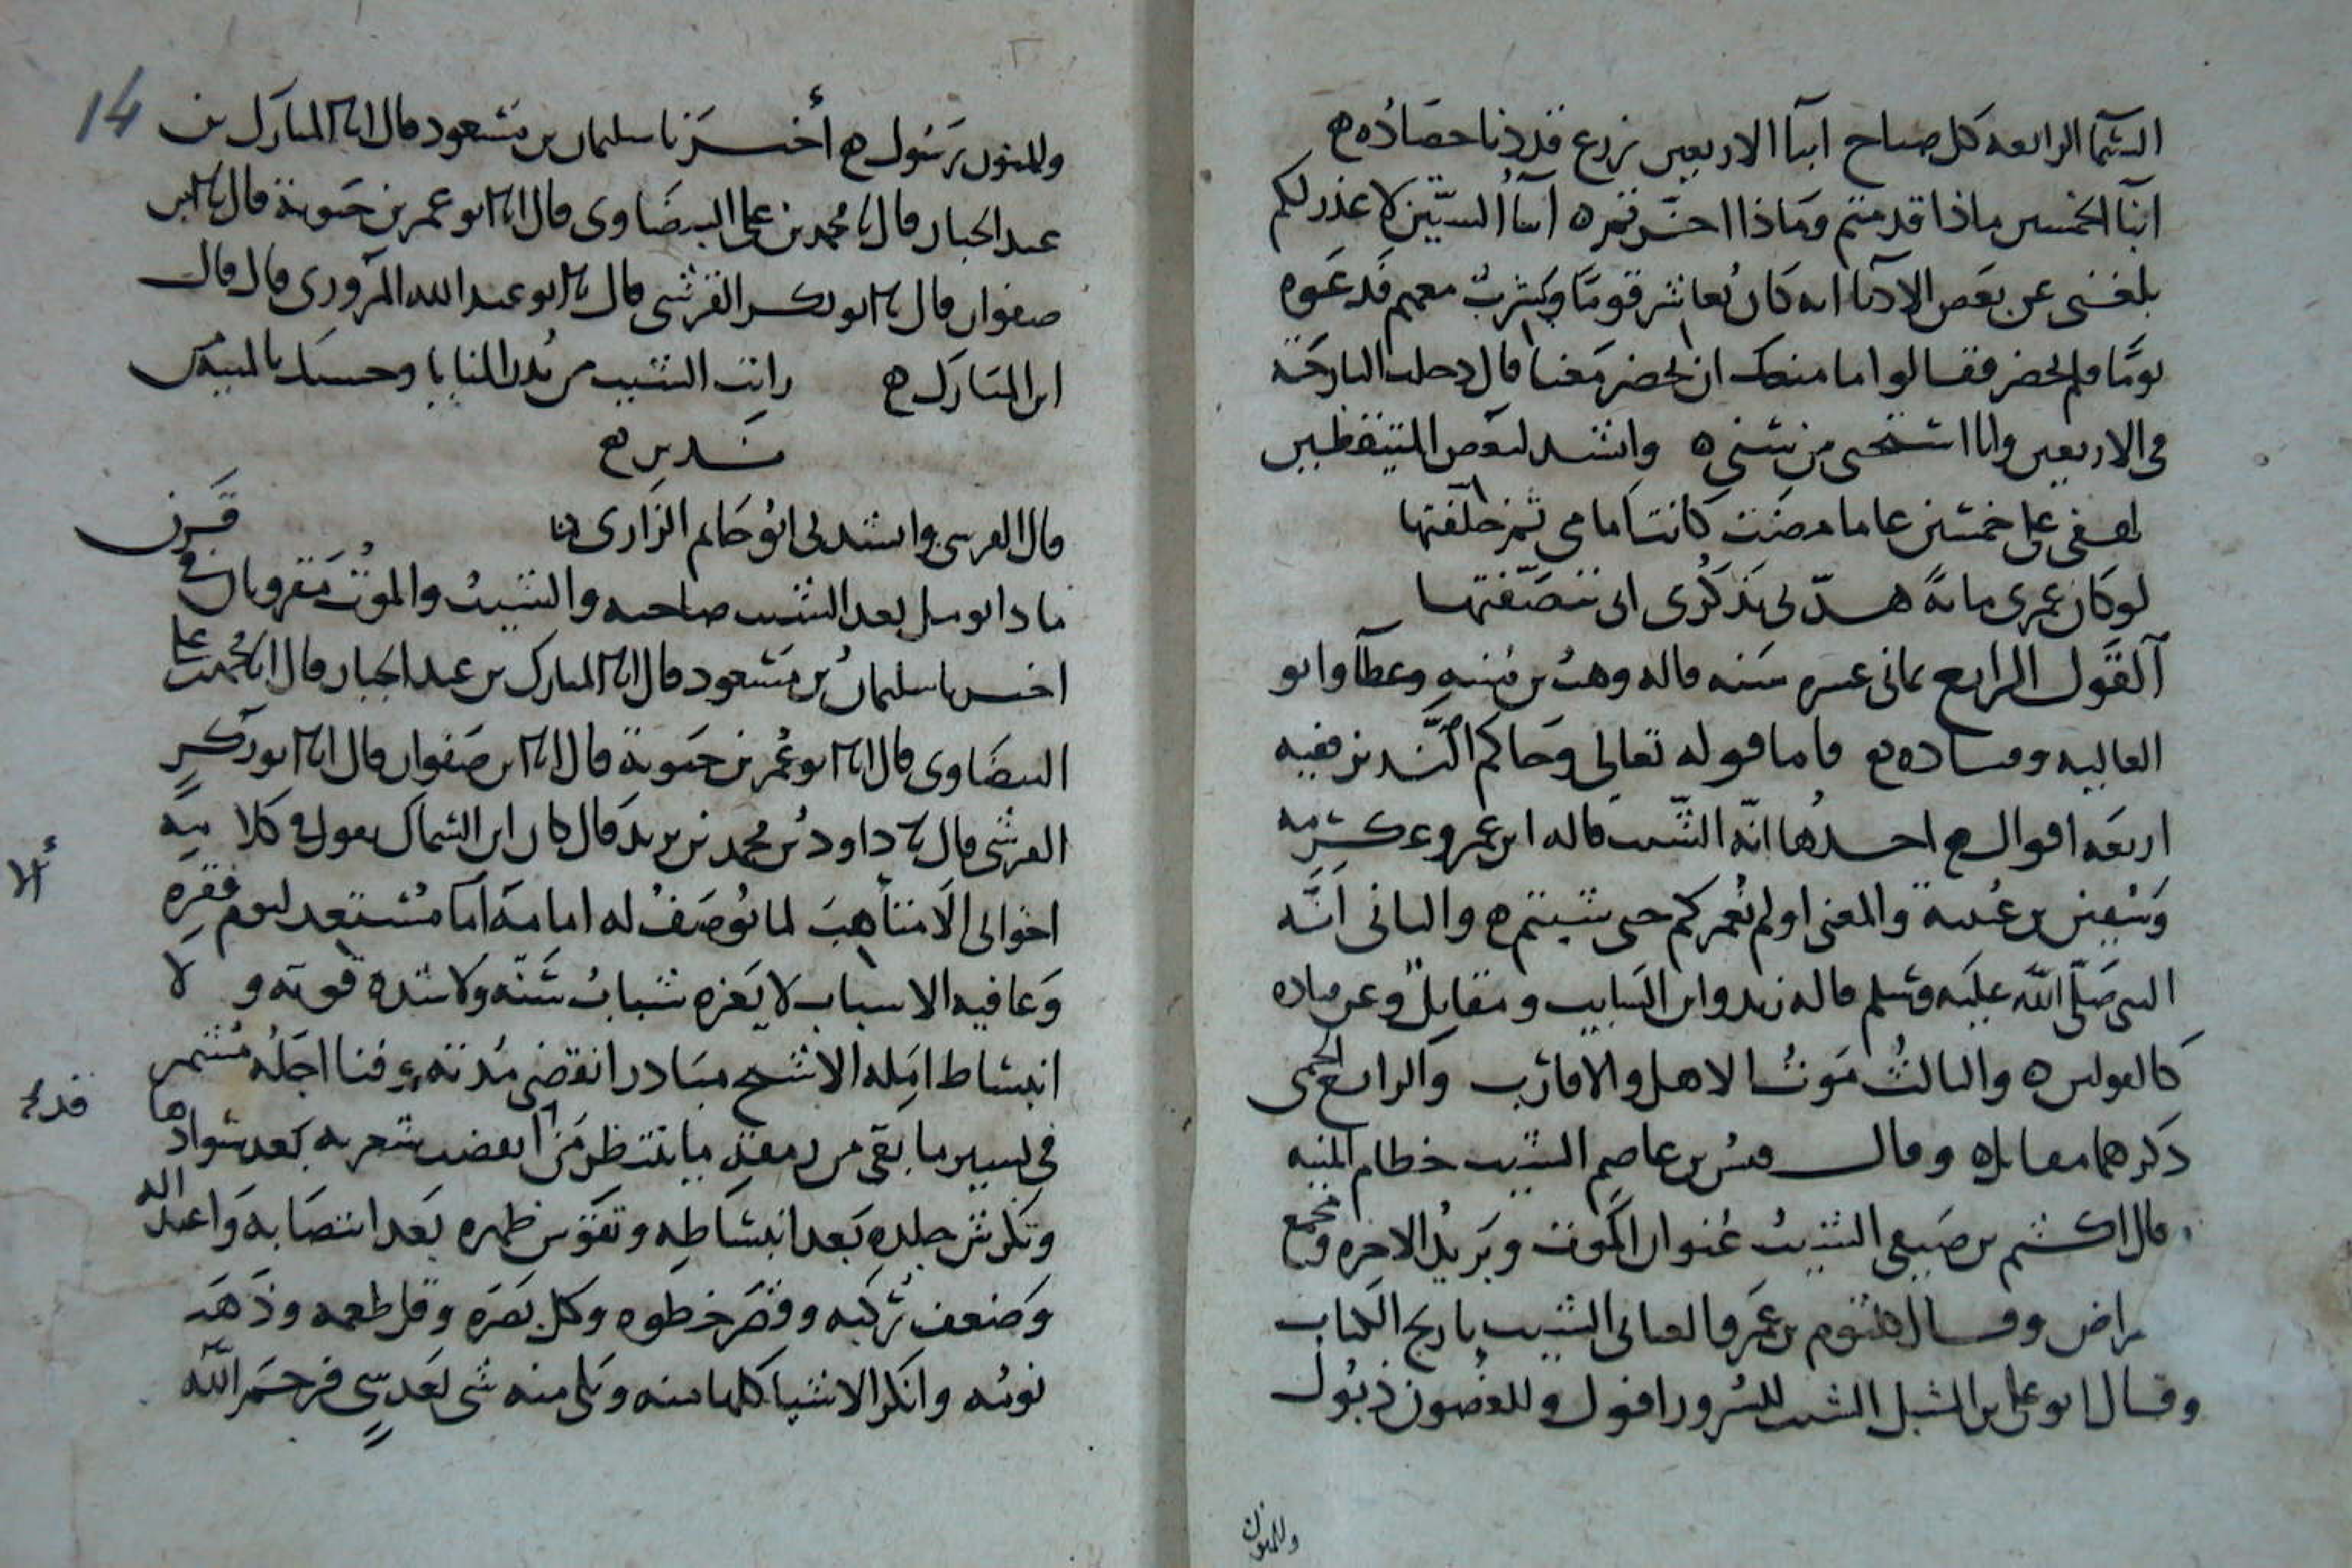 السما الرابعه كل صباح ابنآ الاربعين زرع قد دنا حصاده ه
ابنآ الخمسين ماذا قدمتم وماذا اخرتم ه ابنآ الستين لا عذر لكم
بلغنى عن بعض الادبا انه كان يعاشر قومًا ويشرب معهم فدعوه
يومًا فلم يحضر فقالوا ما منعك ان تحضر معنا قال دخلت البارحة
فى الاربعين وانا استحى من سنى ه وانشد لبعض المتيقظين
لهفى على خمسين عاما مضت كانت امامى ثم خلفتها
لو كان عمرى مائة هدّنى تذكرى انى تنصّفتها
القول الرابع ثمانى عشره سنه قاله وهب بن منبه وعطآ وابو
العاليه وقتاده ه فاما قوله تعالى وجاكم النّذير ففيه
اربعه اقوال ه احدها انّه الشيب قاله ابن عمر وعكرمه
وسفين بن عيينة والمعنى اولم نعمركم حتى شبتم ه والثانى انّه
النبى صلّى اللّه عليه وسلم قاله زيد وابن السايب ومقاتل وعن قتاده
كالقولين ه والثالث موت الاهل والاقارب والرابع الحمى
ذكرهما مقاتل ه وقال قيس بن عاصم الشيب خطام المنيه
قال اكثم بن صيفى الشيب عنوان الموت وبريد الاخره ومجمع
مراض وقال كلثوم بن عمرو العتابى الشيب تاريخ الكتاب
وقال ابو على بن الشبل الشيب للسرور افول وللغصون ذبول
وللمنون
14
وللمنون رسول ه أخبرنا سليمان بن مسعود قال انا المبارك بن
عبد الجبار قال نا محمد بن على البيضاوى قال انا ابو عمر بن حيوية قال نا ابن
صفوان قال نا ابو بكر القرشى قال نا ابو عبد الله المروزى قال قال
ابن المبارك ه رايت الشيب من نذر المنايا وحسبك بالمشيب من
نذير ه
قال القرشى وانشدنى ابو حاتم الرازى
ماذا تومل بعد الشيب صاحبه والشيب والموت مقرونان فى قرن
اخبرنا سليمان بن مسعود قال انا المبارك بن عبد الجبار قال انا محمد بن على
البيضاوى قال انا ابو عمر بن حيوية قال انا ابن صفوان قال انا ابو بكر
القرشى قال نا داود بن محمد بن يزيد قال كان ابن السماك يقول فى كلامه
ألا
اخوانى الا متأهب لما يوصف له امامه اما مستعد ليوم فقره
وعافيه الاسباب لا يغره شباب سنّه ولا شدة قوته و لا
انبساط امله الا شيخ مبادر انقضى مدته وفنا اجله مشمر
قد
فى يسير ما بقى من رمقه ما ينتظر من ابيض شعره بعد سوادها
وتكرش جلده بعد انبساطه وتقوس ظهره بعد انتصابه واعتداله
وضعف ركبه وقصر خطوه وكل بصره وقل طعمه وذهب
نومه وانكر الاشيا كلها منه وبلى منه شى بعد شىٍ فرحم اللّه